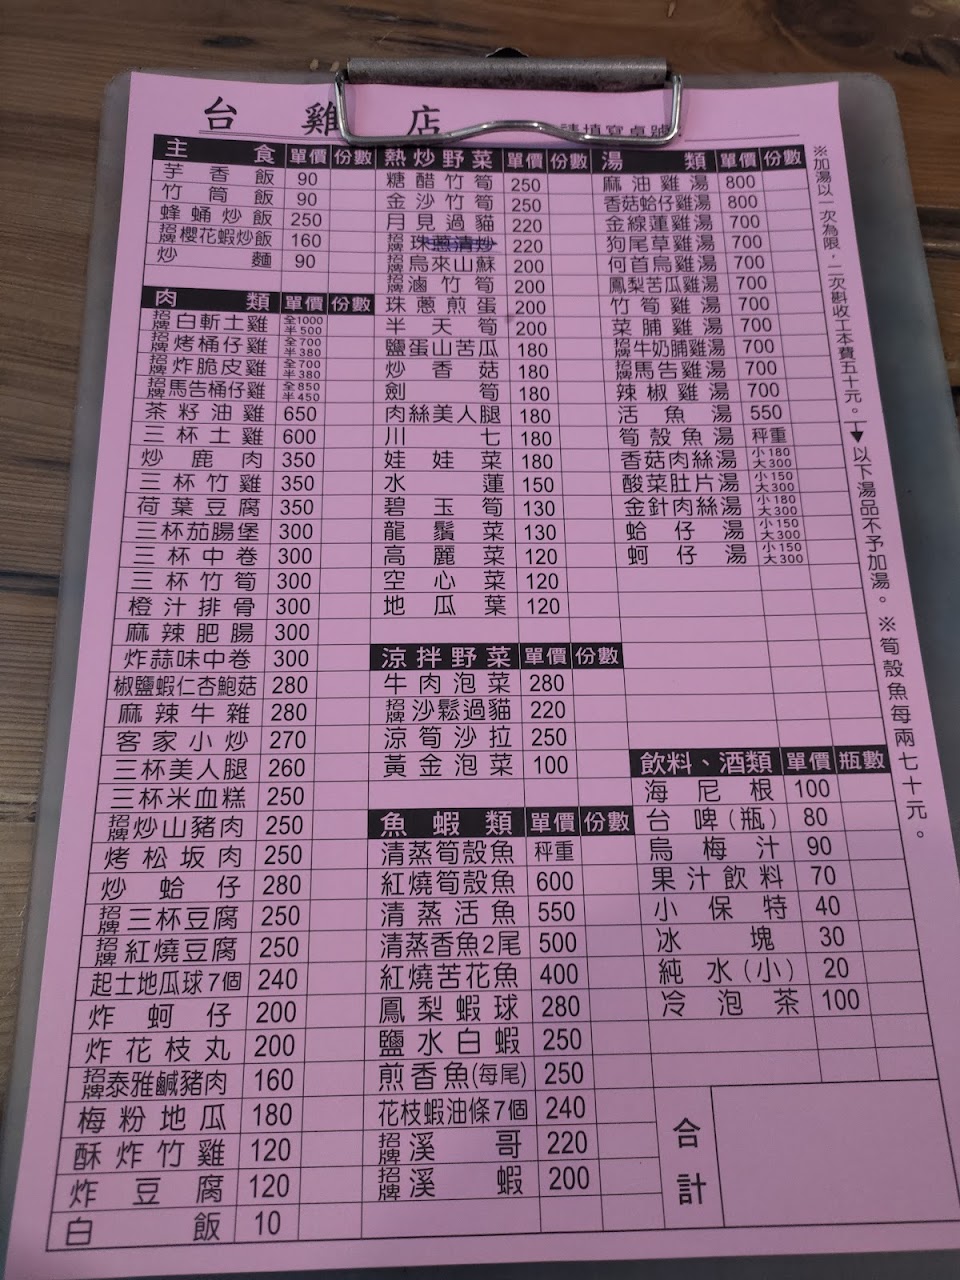 台雞店
請填寫桌號
主食 單價 份數
芋香飯 90
竹筒飯 90
蜂蛹炒飯 250
招牌櫻花蝦炒飯 160
炒麵 90
肉類 單價 份數
招牌白斬土雞 全1000 半500
招牌烤桶仔雞 全700 半380
招牌炸脆皮雞 全700 半380
招牌馬告桶仔雞 全850 半450
茶籽油雞 650
三杯土雞 600
炒鹿肉 350
三杯竹雞 350
荷葉豆腐 350
三杯茄腸堡 300
三杯中卷 300
三杯竹筍 300
橙汁排骨 300
麻辣肥腸 300
炸蒜味中卷 300
椒鹽蝦仁杏鮑菇 280
麻辣牛雜 280
客家小炒 270
三杯美人腿 260
三杯米血糕 250
招牌炒山豬肉 250
烤松坂肉 250
炒蛤仔 280
招牌三杯豆腐 250
招牌紅燒豆腐 250
起士地瓜球7個 240
炸蚵仔 200
炸花枝丸 200
招牌泰雅鹹豬肉 160
梅粉地瓜 180
酥炸竹雞 120
炸豆腐 120
白飯 10
熱炒野菜 單價 份數
糖醋竹筍 250
金沙竹筍 250
月見過貓 220
招牌珠蔥清炒 220
招牌烏來山蘇 200
招牌滷竹筍 200
珠蔥煎蛋 200
半天筍 200
鹽蛋山苦瓜 180
炒香菇 180
劍筍 180
肉絲美人腿 180
川七 180
娃娃菜 180
水蓮 150
碧玉筍 130
龍鬚菜 130
高麗菜 120
空心菜 120
地瓜葉 120
涼拌野菜 單價 份數
牛肉泡菜 280
招牌沙鬆過貓 220
涼筍沙拉 250
黃金泡菜 100
魚蝦類 單價 份數
清蒸筍殼魚 秤重
紅燒筍殼魚 600
清蒸活魚 550
清蒸香魚2尾 500
紅燒苦花魚 400
鳳梨蝦球 280
鹽水白蝦 250
煎香魚(每尾) 250
花枝蝦油條7個 240
招牌溪哥 220
招牌溪蝦 200
湯類 單價 份數
麻油雞湯 800
香菇蛤仔雞湯 800
金線蓮雞湯 700
狗尾草雞湯 700
何首烏雞湯 700
鳳梨苦瓜雞湯 700
竹筍雞湯 700
菜脯雞湯 700
招牌牛奶脯雞湯 700
招牌馬告雞湯 700
辣椒雞湯 700
活魚湯 550
筍殼魚湯 秤重
香菇肉絲湯 小180 大300
酸菜肚片湯 小150 大300
金針肉絲湯 小180 大300
蛤仔湯 小150 大300
蚵仔湯 小150 大300
飲料、酒類 單價 瓶數
海尼根 100
台啤(瓶) 80
烏梅汁 90
果汁飲料 70
小保特 40
冰塊 30
純水(小) 20
冷泡茶 100
合計
※加湯以一次為限，二次斟收工本費五十元。
以下湯品不予加湯。※筍殼魚每兩七十元。